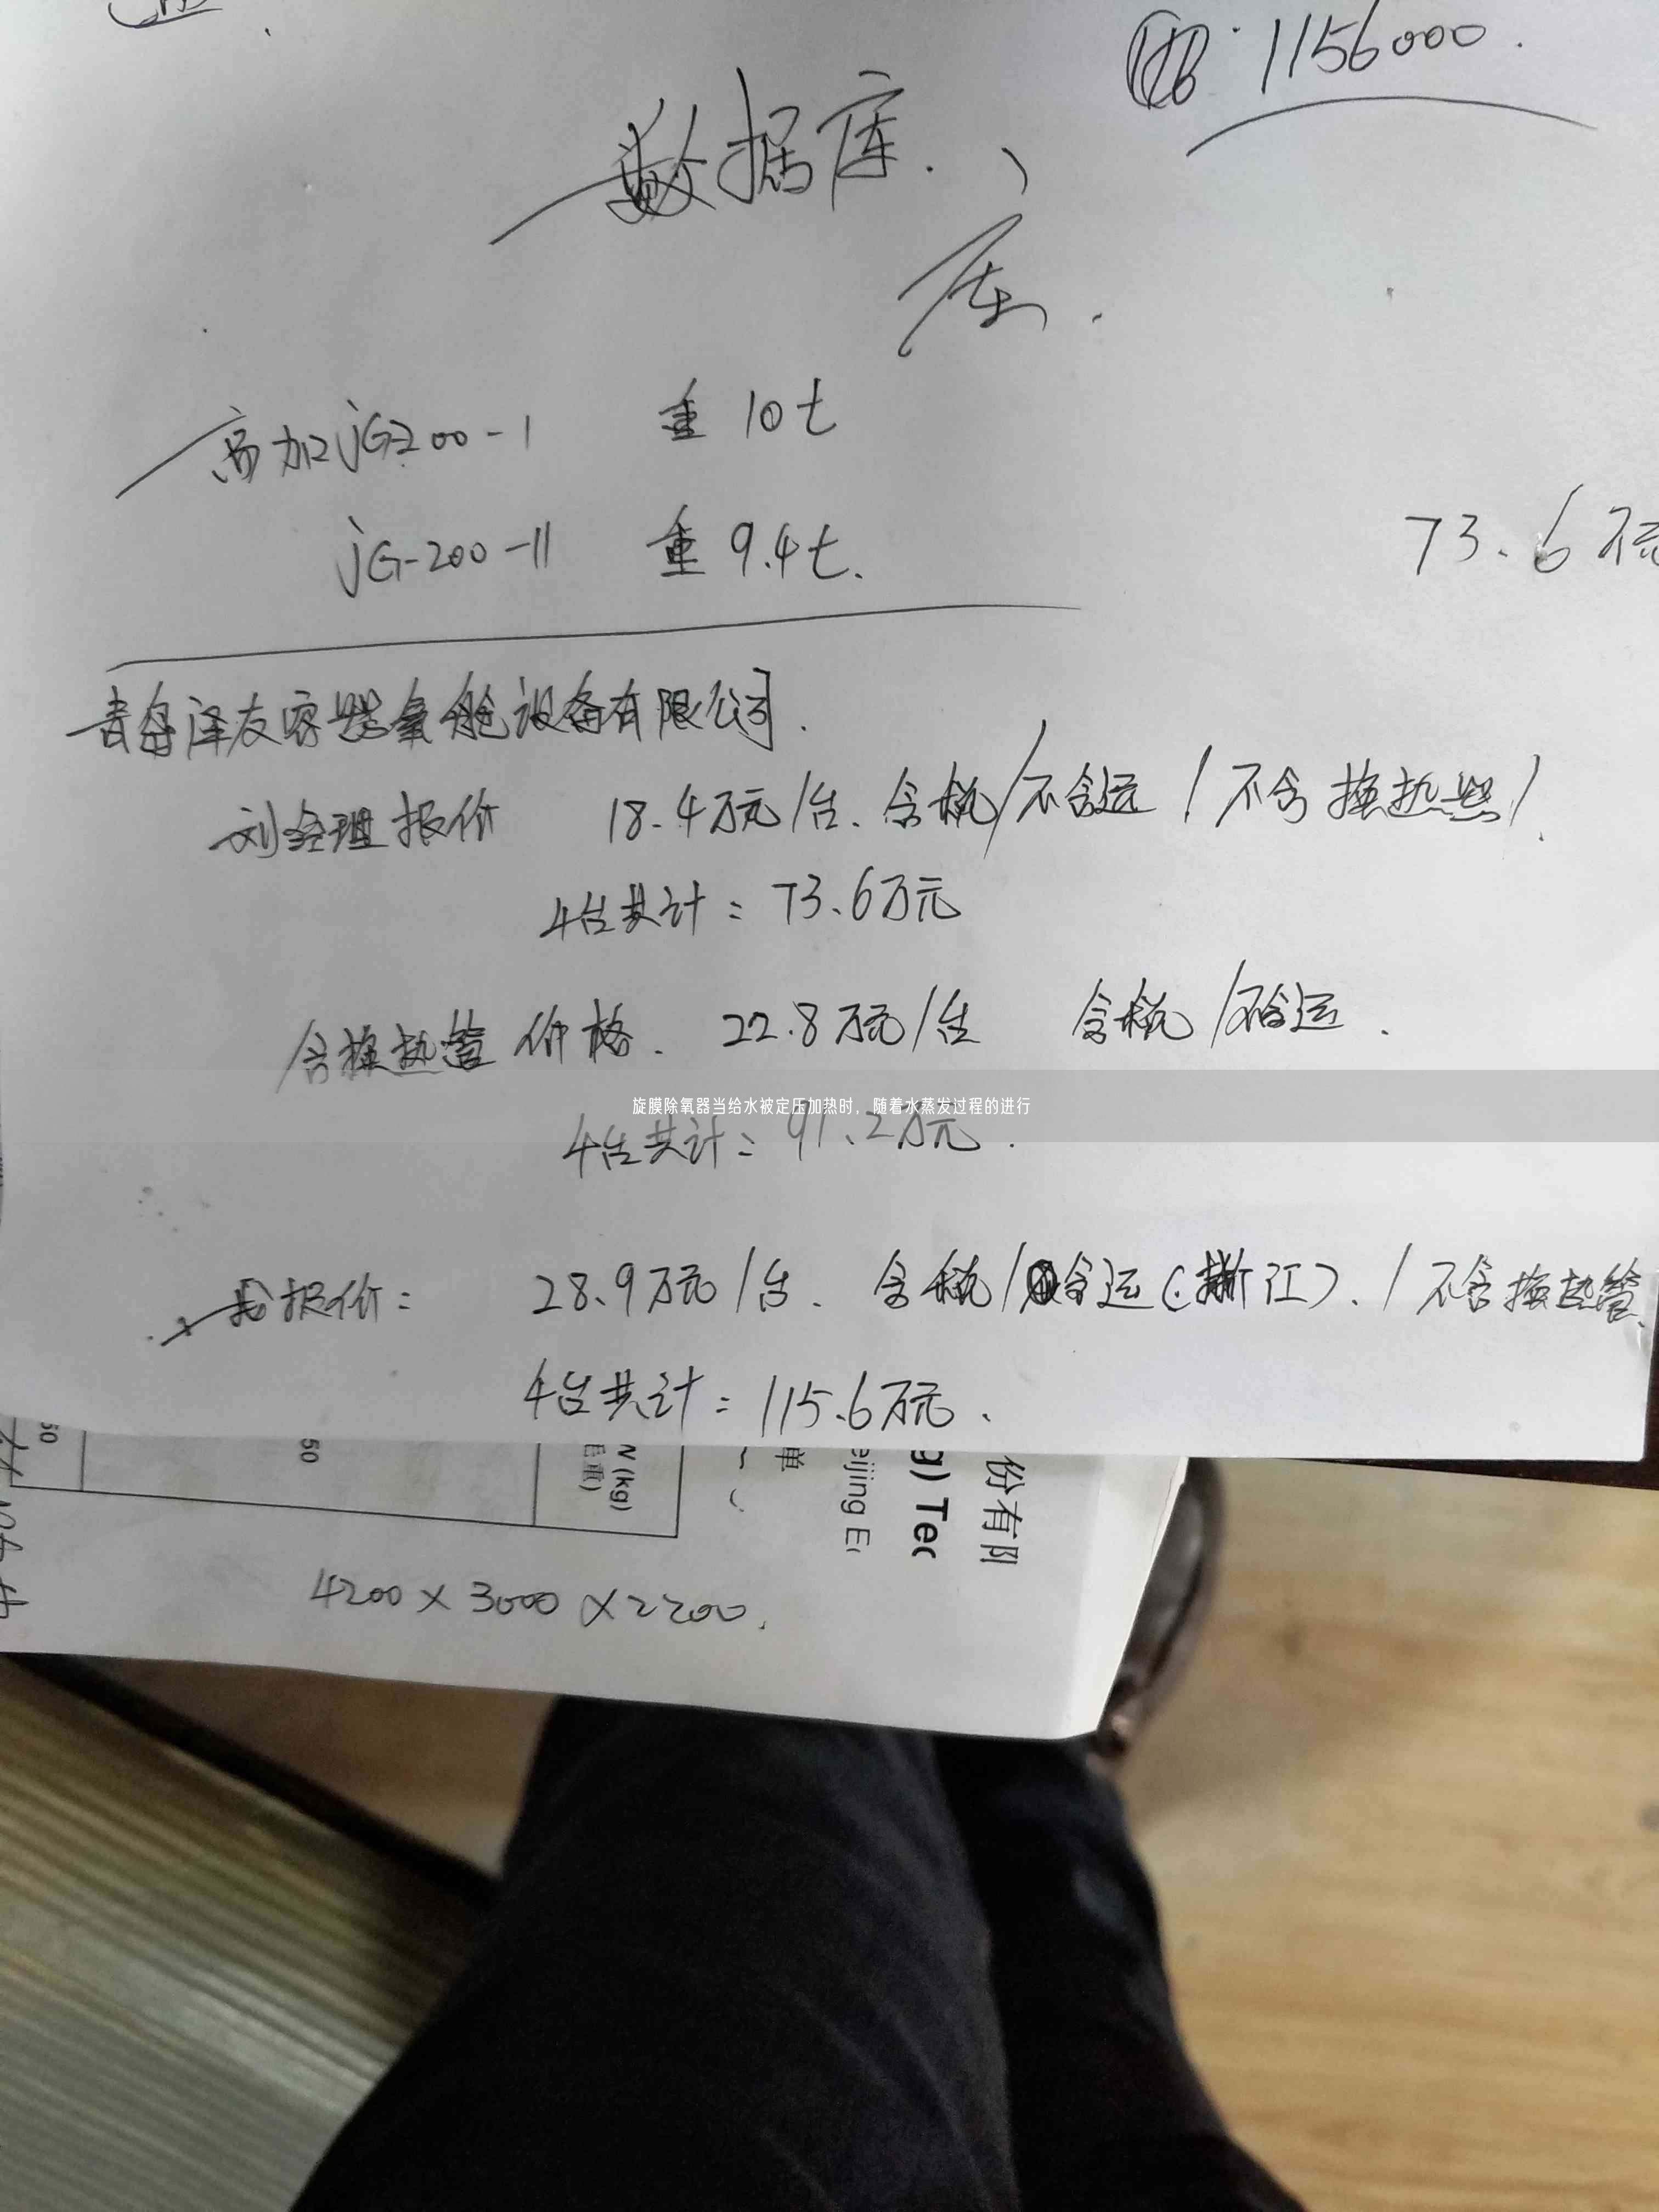 1156000.
数据库.、
库.
高加jG200-1 重 10t
jG-200-11 重 9.4t.
73.6万元
青岛泽友容器氧舱设备有限公司.
刘经理报价 18.4万元/台. 含税/不含运/不含换热管/.
4台共计: 73.6万元
含换热管 价格. 22.8万元/台 含税/不含运.
旋膜除氧器当给水被定压加热时，随着水蒸发过程的进行
4台共计: 91.2万元.
我报价: 28.9万元/台. 含税/含运(浙江). /不含换热管.
4台共计: 115.6万元.
50
50
N (kg)
毛重)
单
eijing E
g) Tec
份有限
4200×3000×2200.